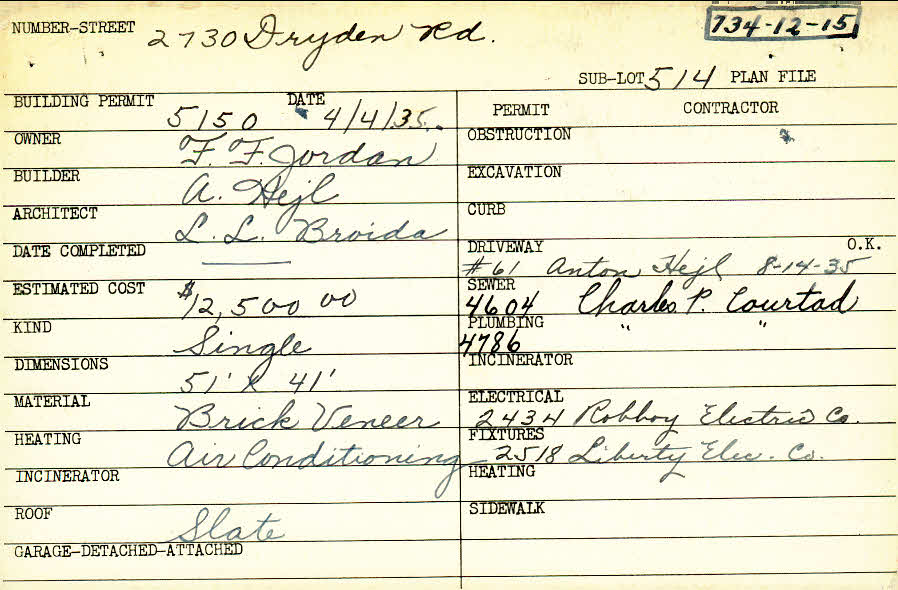 NUMBER-STREET 2730 Dryden Rd. 734-12-15
SUB-LOT 514 PLAN FILE
BUILDING PERMIT 5150 DATE 4/4/35.
OWNER F. F. Jordan
BUILDER A. Hejl
ARCHITECT L. L. Broida
DATE COMPLETED
ESTIMATED COST $12,500 00
KIND Single
DIMENSIONS 51' x 41'
MATERIAL Brick Veneer
HEATING Air Conditioning
INCINERATOR
ROOF Slate
GARAGE-DETACHED-ATTACHED
PERMIT CONTRACTOR
OBSTRUCTION
EXCAVATION
CURB
DRIVEWAY O.K.
#61 Anton Hejl 8-14-35
SEWER
4604 Charles P. Courtad
PLUMBING
4786 " "
INCINERATOR
ELECTRICAL
2434 Robboy Electric Co.
FIXTURES
2518 Liberty Elec. Co.
HEATING
SIDEWALK